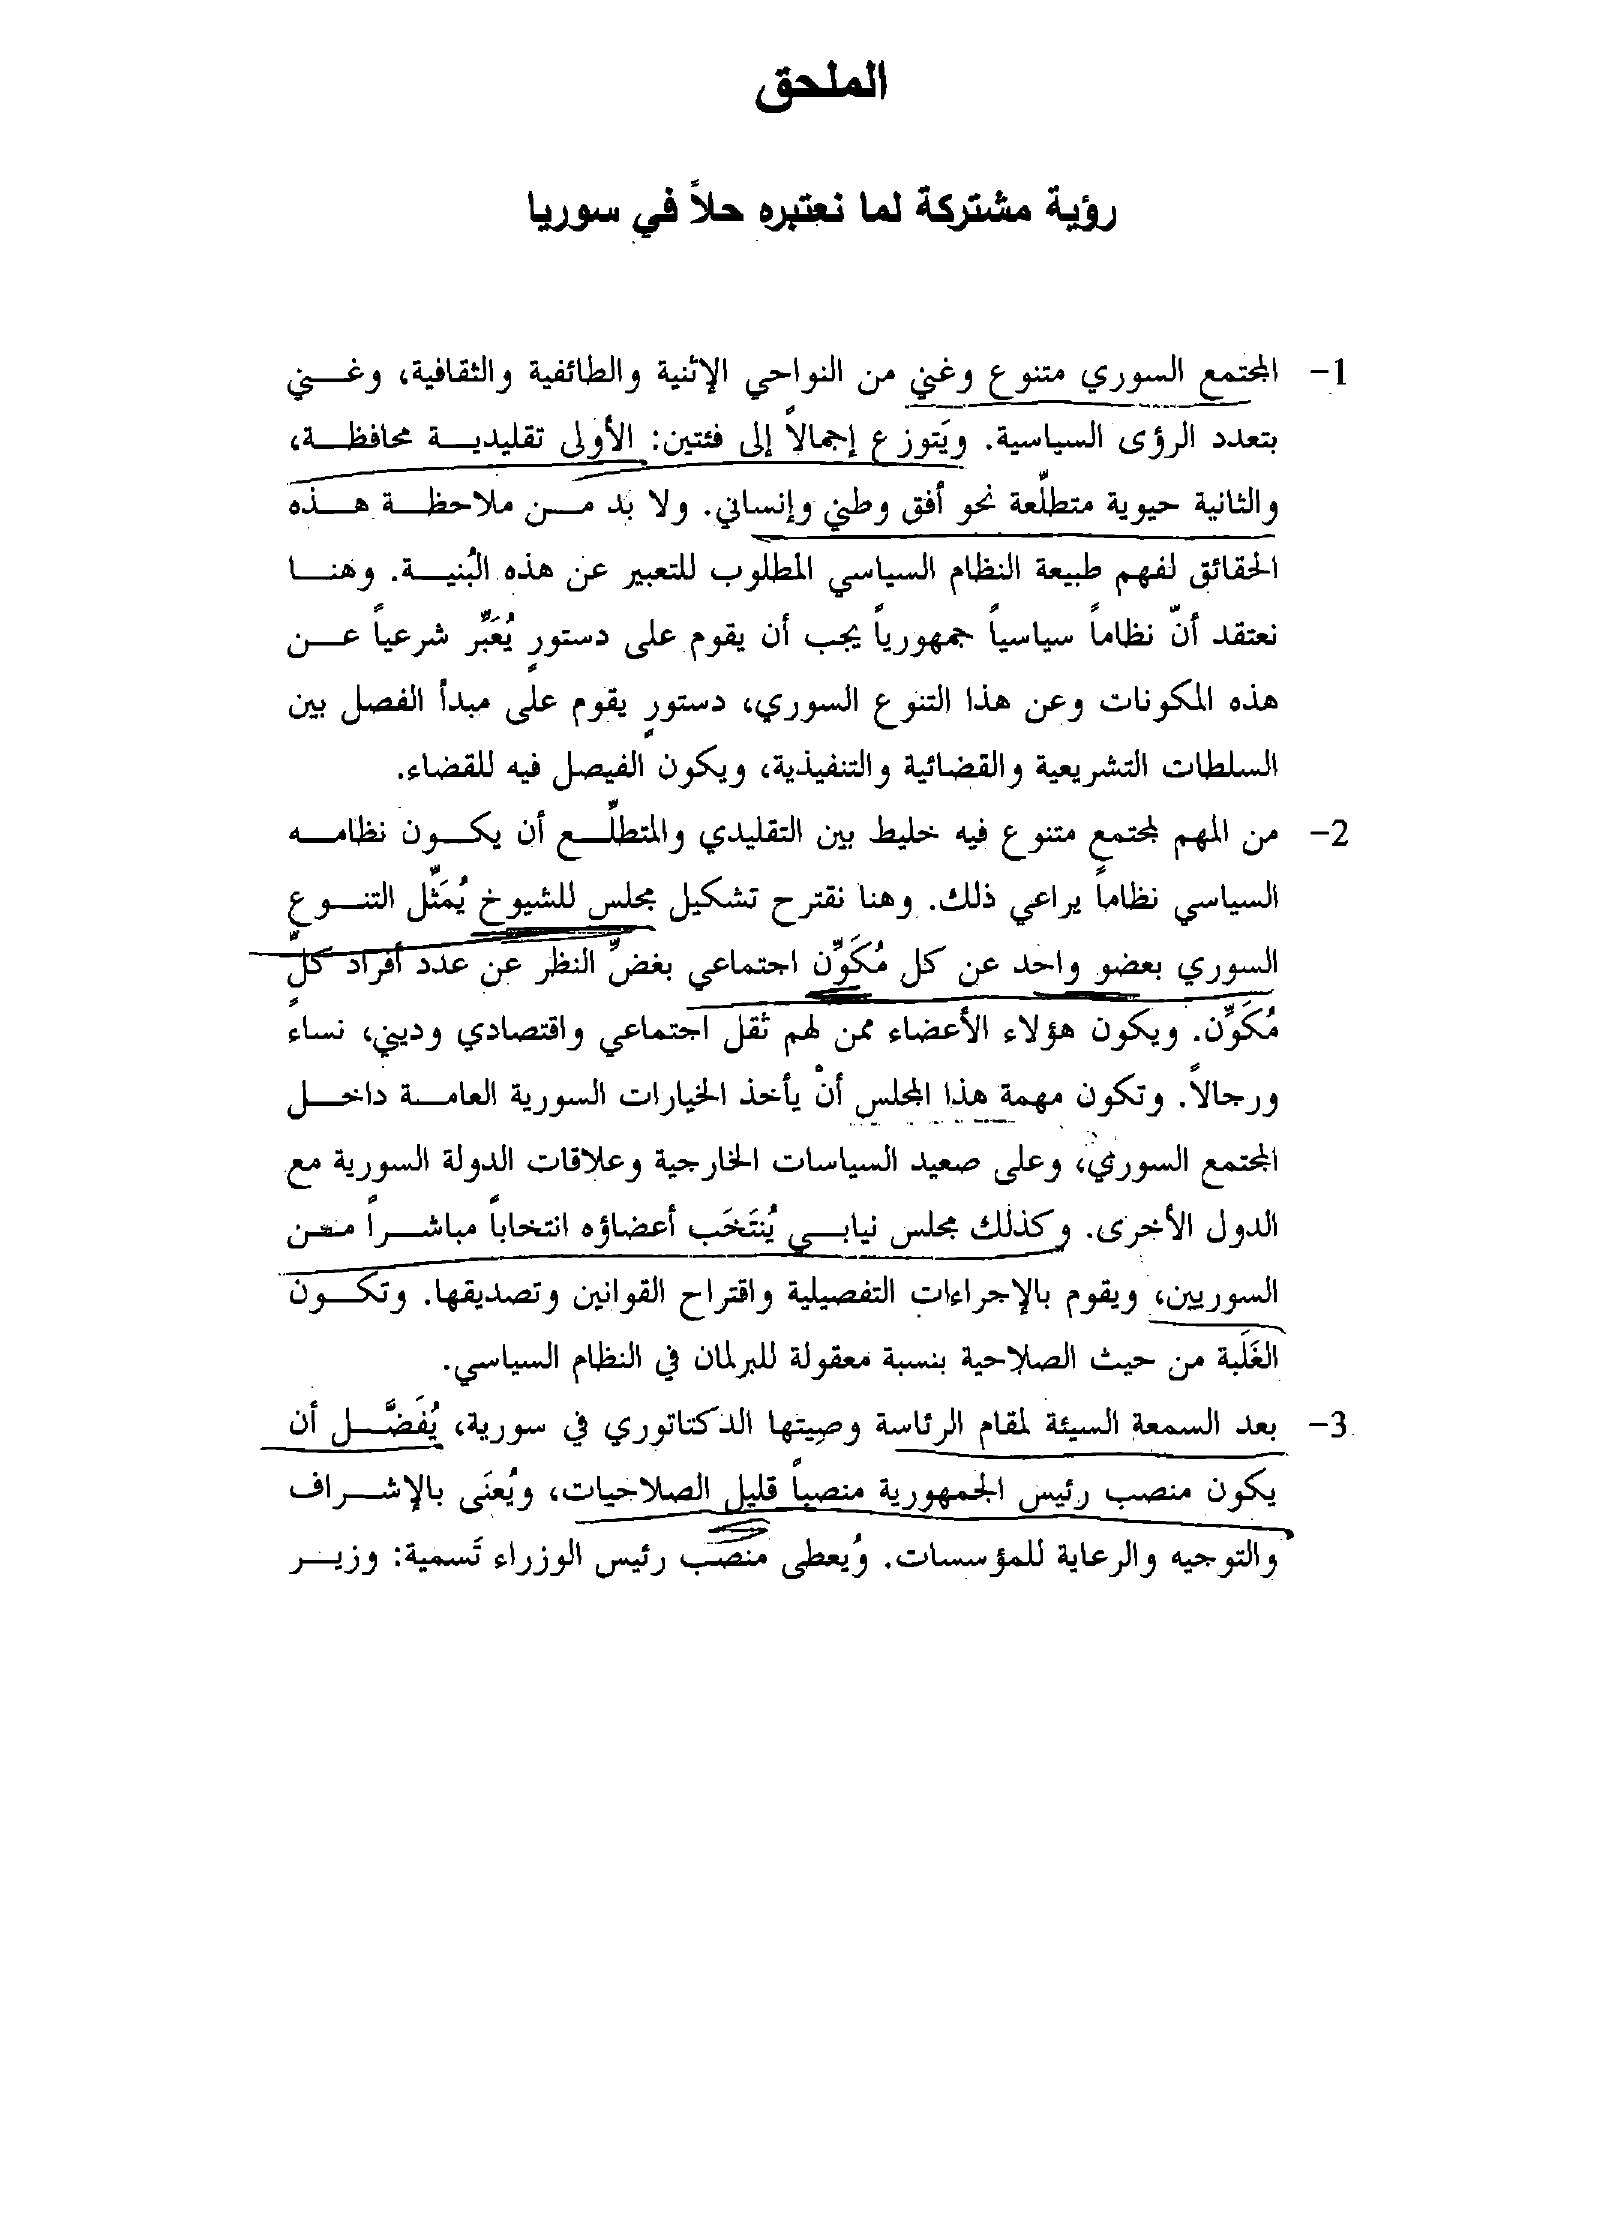 الملحق
رؤية مشتركة لما نعتبره حلاً في سوريا
1- المجتمع السوري متنوع وغني من النواحي الإثنية والطائفية والثقافية، وغني
بتعدد الرؤى السياسية. ويَتوزع إجمالاً إلى فئتين: الأولى تقليدية محافظة،
والثانية حيوية متطلّعة نحو أفق وطني وإنساني. ولا بد من ملاحظة هذه
الحقائق لفهم طبيعة النظام السياسي المطلوب للتعبير عن هذه البُنية. وهنا
نعتقد أنّ نظاماً سياسياً جمهورياً يجب أن يقوم على دستورٍ يُعَبِّر شرعياً عن
هذه المكونات وعن هذا التنوع السوري، دستورٍ يقوم على مبدأ الفصل بين
السلطات التشريعية والقضائية والتنفيذية، ويكون الفيصل فيه للقضاء.
2- من المهم لمجتمعٍ متنوع فيه خليط بين التقليدي والمتطلّع أن يكون نظامه
السياسي نظاماً يراعي ذلك. وهنا نقترح تشكيل مجلس للشيوخ يُمَثِّل التنوع
السوري بعضو واحد عن كل مُكَوِّن اجتماعي بغضِّ النظر عن عدد أفراد كلِّ
مُكَوِّن. ويكون هؤلاء الأعضاء ممن لهم ثقل اجتماعي واقتصادي وديني، نساءً
ورجالاً. وتكون مهمة هذا المجلس أنْ يأخذ الخيارات السورية العامة داخل
المجتمع السوري، وعلى صعيد السياسات الخارجية وعلاقات الدولة السورية مع
الدول الأخرى. وكذلك مجلس نيابي يُنتَخَب أعضاؤه انتخاباً مباشراً من
السوريين، ويقوم بالإجراءات التفصيلية واقتراح القوانين وتصديقها. وتكون
الغَلَبة من حيث الصلاحية بنسبة معقولة للبرلمان في النظام السياسي.
3- بعد السمعة السيئة لمقام الرئاسة وصِيتها الدكتاتوري في سورية، يُفَضَّل أن
يكون منصب رئيس الجمهورية منصباً قليل الصلاحيات، ويُعنَى بالإشراف
والتوجيه والرعاية للمؤسسات. ويُعطى منصب رئيس الوزراء تَسمية: وزير